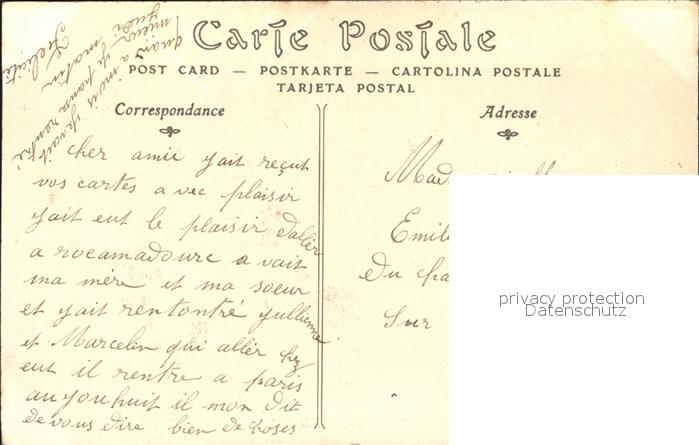 Carte Postale
POST CARD — POSTKARTE — CARTOLINA POSTALE
TARJETA POSTAL
Correspondance
cher amie yait reçut
vos cartes a vec plaisir
yait eut le plaisir daller
a rocamadourc a vait
ma mére et ma soeur
et yait rentontré yullienne
et Marcelin qui aller chez
eut il rentre a paris
auyouhuit il mon dit
de vous dire bien de choses
quand a mois ye vait
mieux ye panse rentré
matin
Felicité
Adresse
Emil
Du cha
Sur
privacy protection
Datenschutz